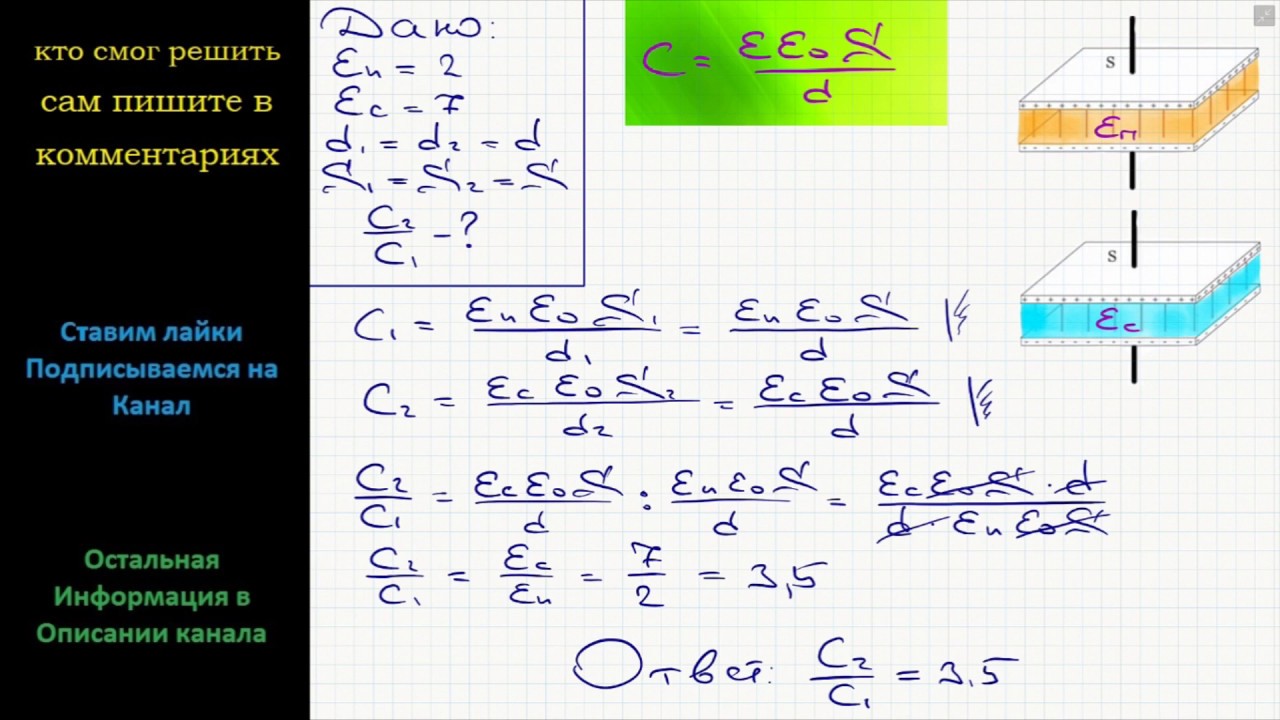 кто смог решить
сам пишите в
комментариях
Ставим лайки
Подписываемся на
Канал
Остальная
Информация в
Описании канала
Дано:
εп = 2
εс = 7
d₁ = d₂ = d
S₁ = S₂ = S
C₂/C₁ - ?
C = εε₀S/d
S
εп
S
εс
C₁ = εп ε₀ S₁/d₁ = εп ε₀ S/d
C₂ = εс ε₀ S₂/d₂ = εс ε₀ S/d
C₂/C₁ = εс ε₀ S/d : εп ε₀ S/d = εс ε₀ S · d/d · εп ε₀ S
C₂/C₁ = εс/εп = 7/2 = 3,5
Ответ: C₂/C₁ = 3,5